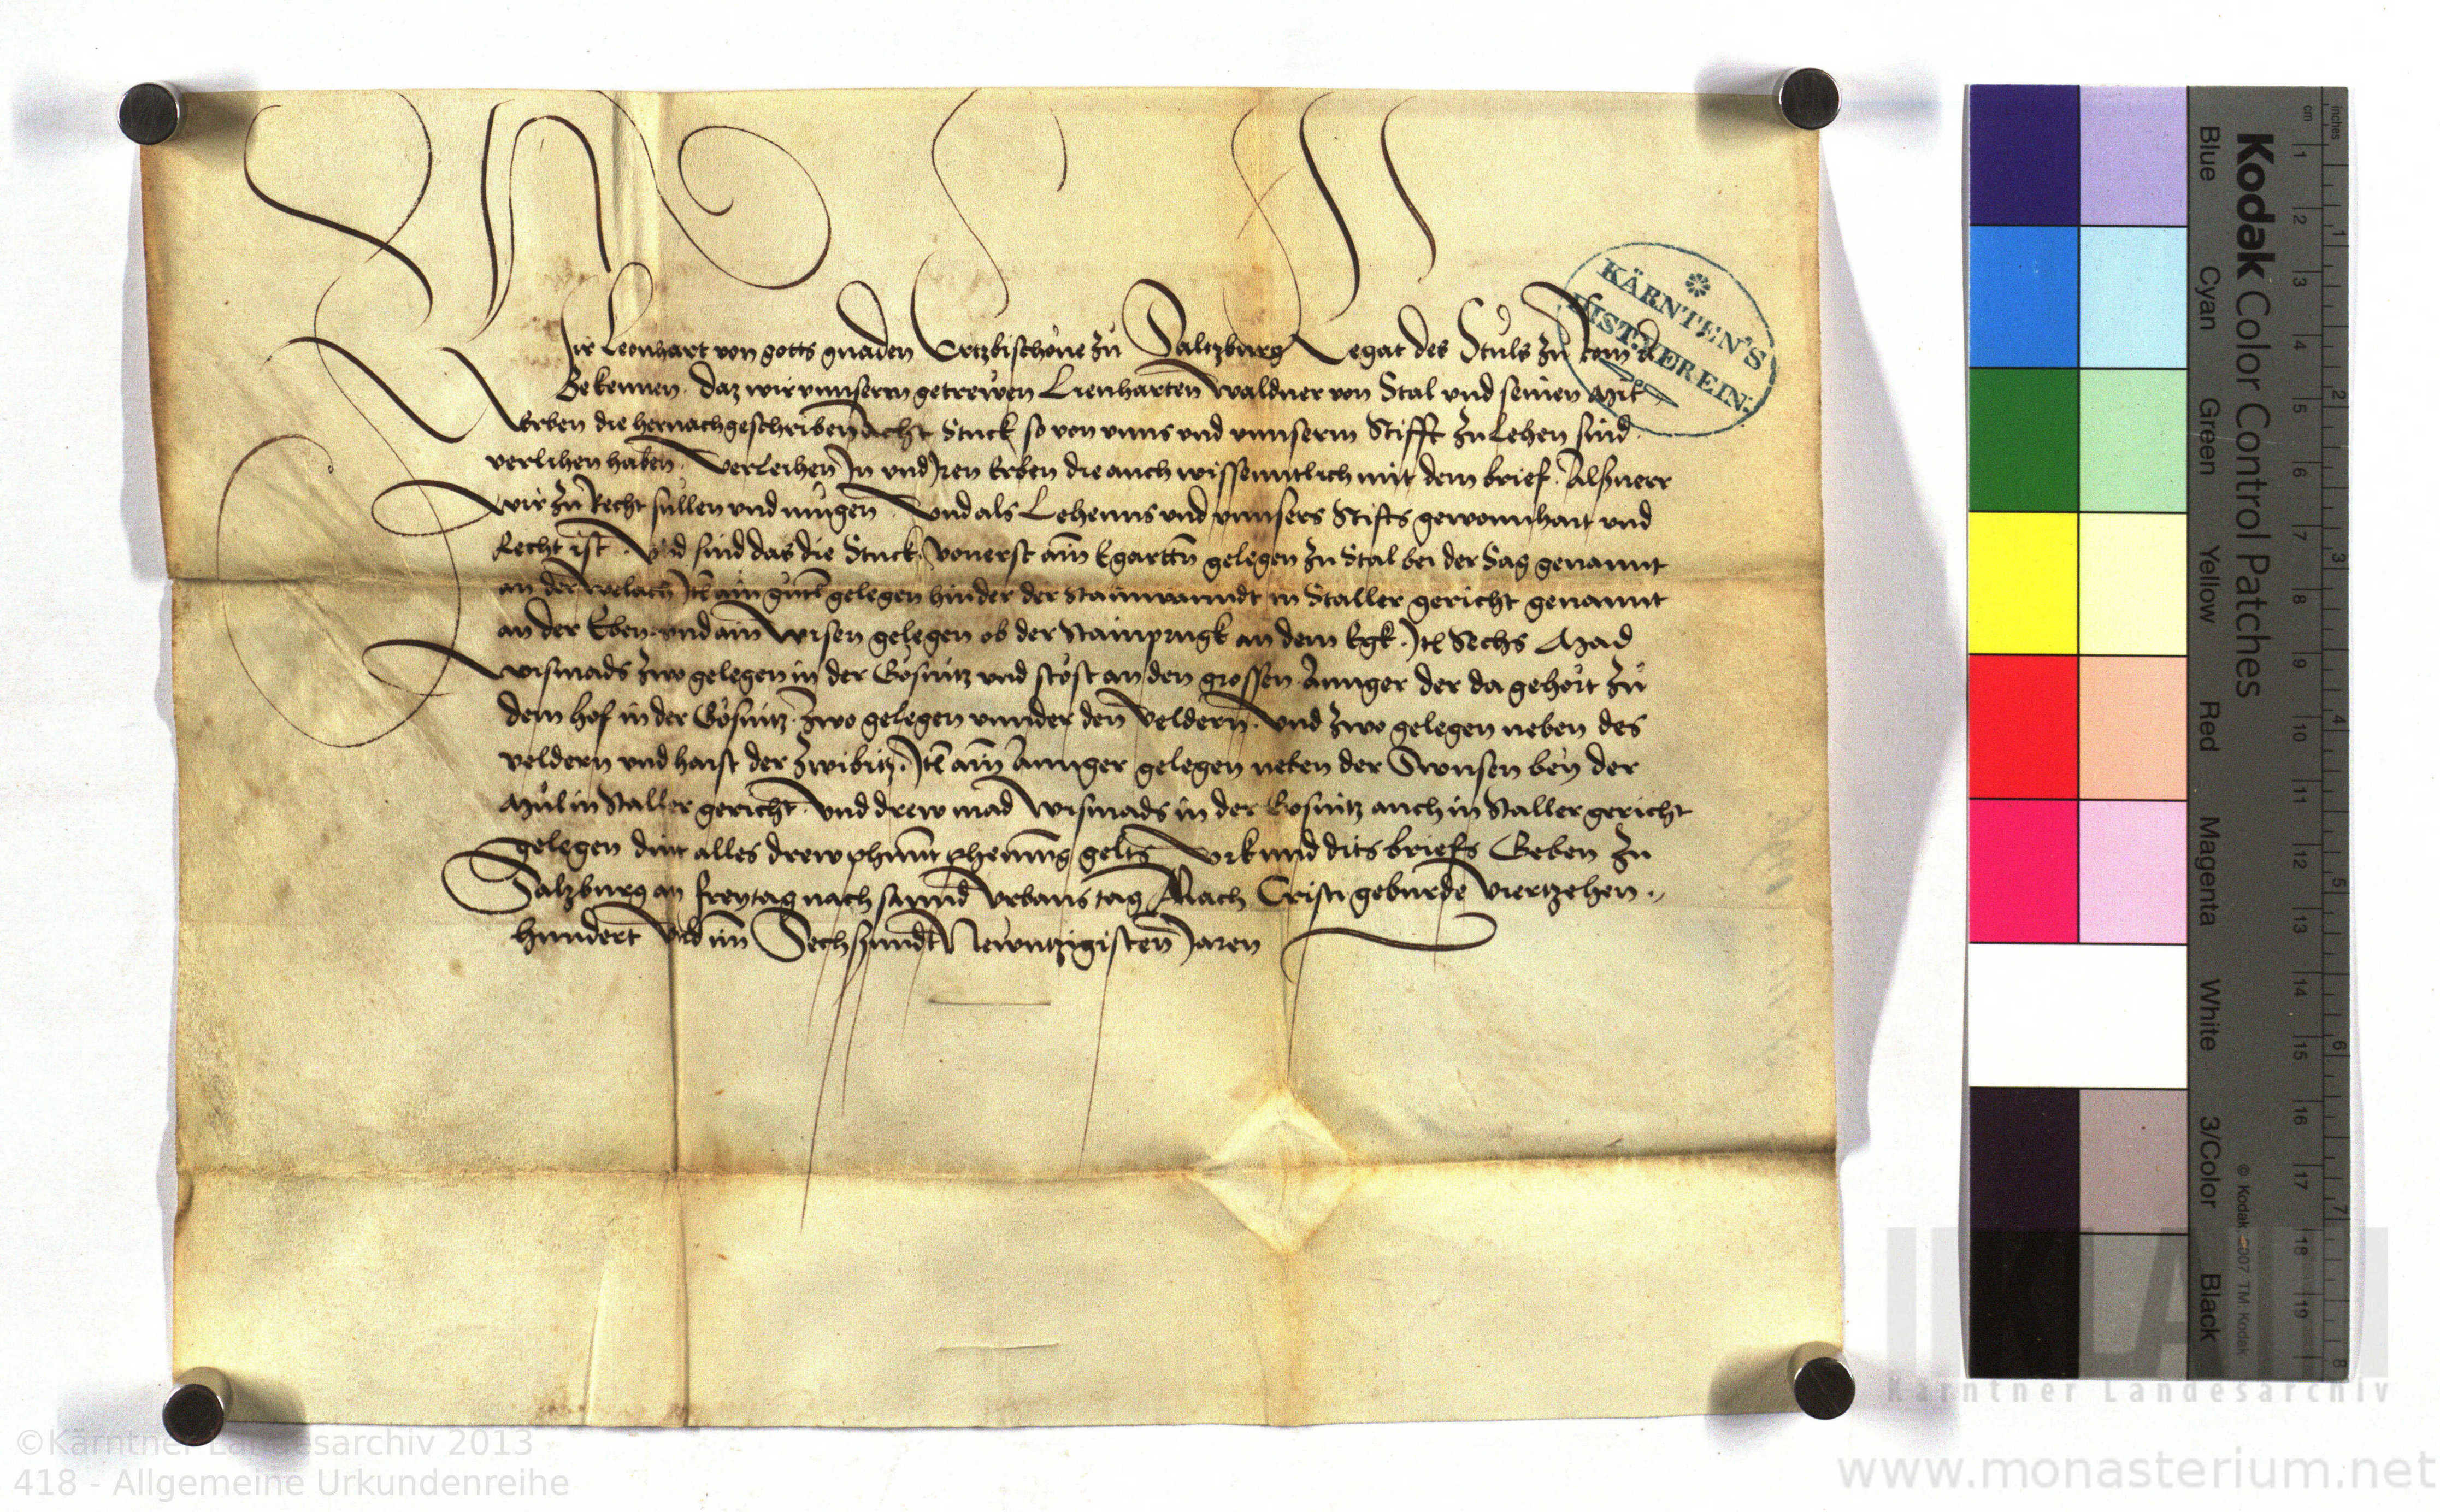 Wir Leonhart von gotts gnaden Ertzbischoue zu Saltzburg Legat des Stuls zu Rom etc
Bekennen. daz wir vnnserm getrewen Lienharten Waldner von Stal vnd seinen Mit
Erben die hernachgeschriben Acht Stuck so von vnns vnd vnnserm Stifft zu Lehen sind.
verlihen haben. Verleihen In vnd Iren Erben die auch wissenntlich mit dem brief. Alsuerr
wir zu Recht sullen vnd mugen. Vnd als Lehenns vnd vnnsers Stifts gewonnhait vnd
Recht ist. Vnd sind das die Stuck. Vonerst ain Egarttn gelegen zu Stal bei der Sag genannt
an der Welach Itẽ ain gutl gelegen hinder der Stainwanndt in Staller gericht genannt
an der Eben. vnd ain Wisen gelegen ob der Stainprugk an dem Egk. Itẽ Sechs Mad
wismads zwo gelegen in der Gosnitz vnd stost an den grossen Annger der da gehort zu
dem hof in der Gosnitz. zwo gelegen vnnder den veldern. Vnd zwo gelegen neben des
veldern vnd haist der Zwibitz. Itẽ ain Annger gelegen neben der bey der
Mul in Staller gericht. Vnd drew mad Wismads in der Gosnitz auch in Staller gericht
gelegen dint alles drew phunnt phennig gelts Vrkund dits briefs Geben zu
Saltzburg an freytag nach sannd Vrbans tag Nach Cristi geburde Viertzehen
hundert Vnd im Sechsunndt Newntzigisten Jaren
KÄRNTEN'S
HIST. VEREIN.
Kodak Color Control Patches
inches 1 2 3 4 5 6 7 8
cm 1 2 3 4 5 6 7 8 9 10 11 12 13 14 15 16 17 18 19
Blue Cyan Green Yellow Red Magenta White 3/Color Black
© Kodak, 2007 TM: Kodak
Kärntner Landesarchiv
©Kärntner Landesarchiv 2013
418 - Allgemeine Urkundenreihe
www.monasterium.net